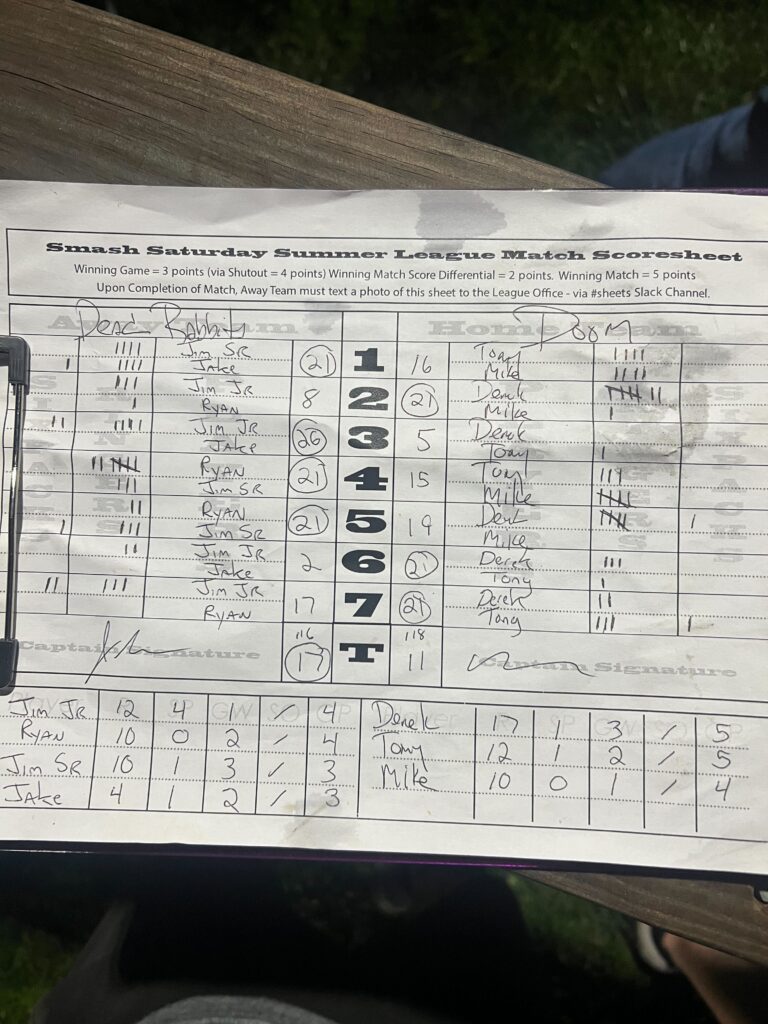 Smash Saturday Summer League Match Scoresheet
Winning Game = 3 points (via Shutout = 4 points) Winning Match Score Differential = 2 points. Winning Match = 5 points
Upon Completion of Match, Away Team must text a photo of this sheet to the League Office - via #sheets Slack Channel.
Away Team Home Team
Dead Rabbits Doom
Jim SR 21 1 16 Tony
Jake Mike
Jim JR 8 2 21 Derek
RYAN Mike
Jim JR 26 3 5 Derek
JAKE Tony
RYAN 21 4 15 Tony
Jim SR Mike
RYAN 21 5 19 Derek
Jim SR Mike
Jim JR 2 6 21 Derek
JAKE Tony
Jim JR 17 7 21 Derek
RYAN Tony
116 118
Captain Signature 17 T 11 Captain Signature
SP GW SO GP SP GW SO GP
Jim JR 12 4 1 / 4 Derek 17 1 3 / 5
RYAN 10 0 2 / 4 Tony 12 1 2 / 5
Jim SR 10 1 3 / 3 Mike 10 0 1 / 4
JAKE 4 1 2 / 3